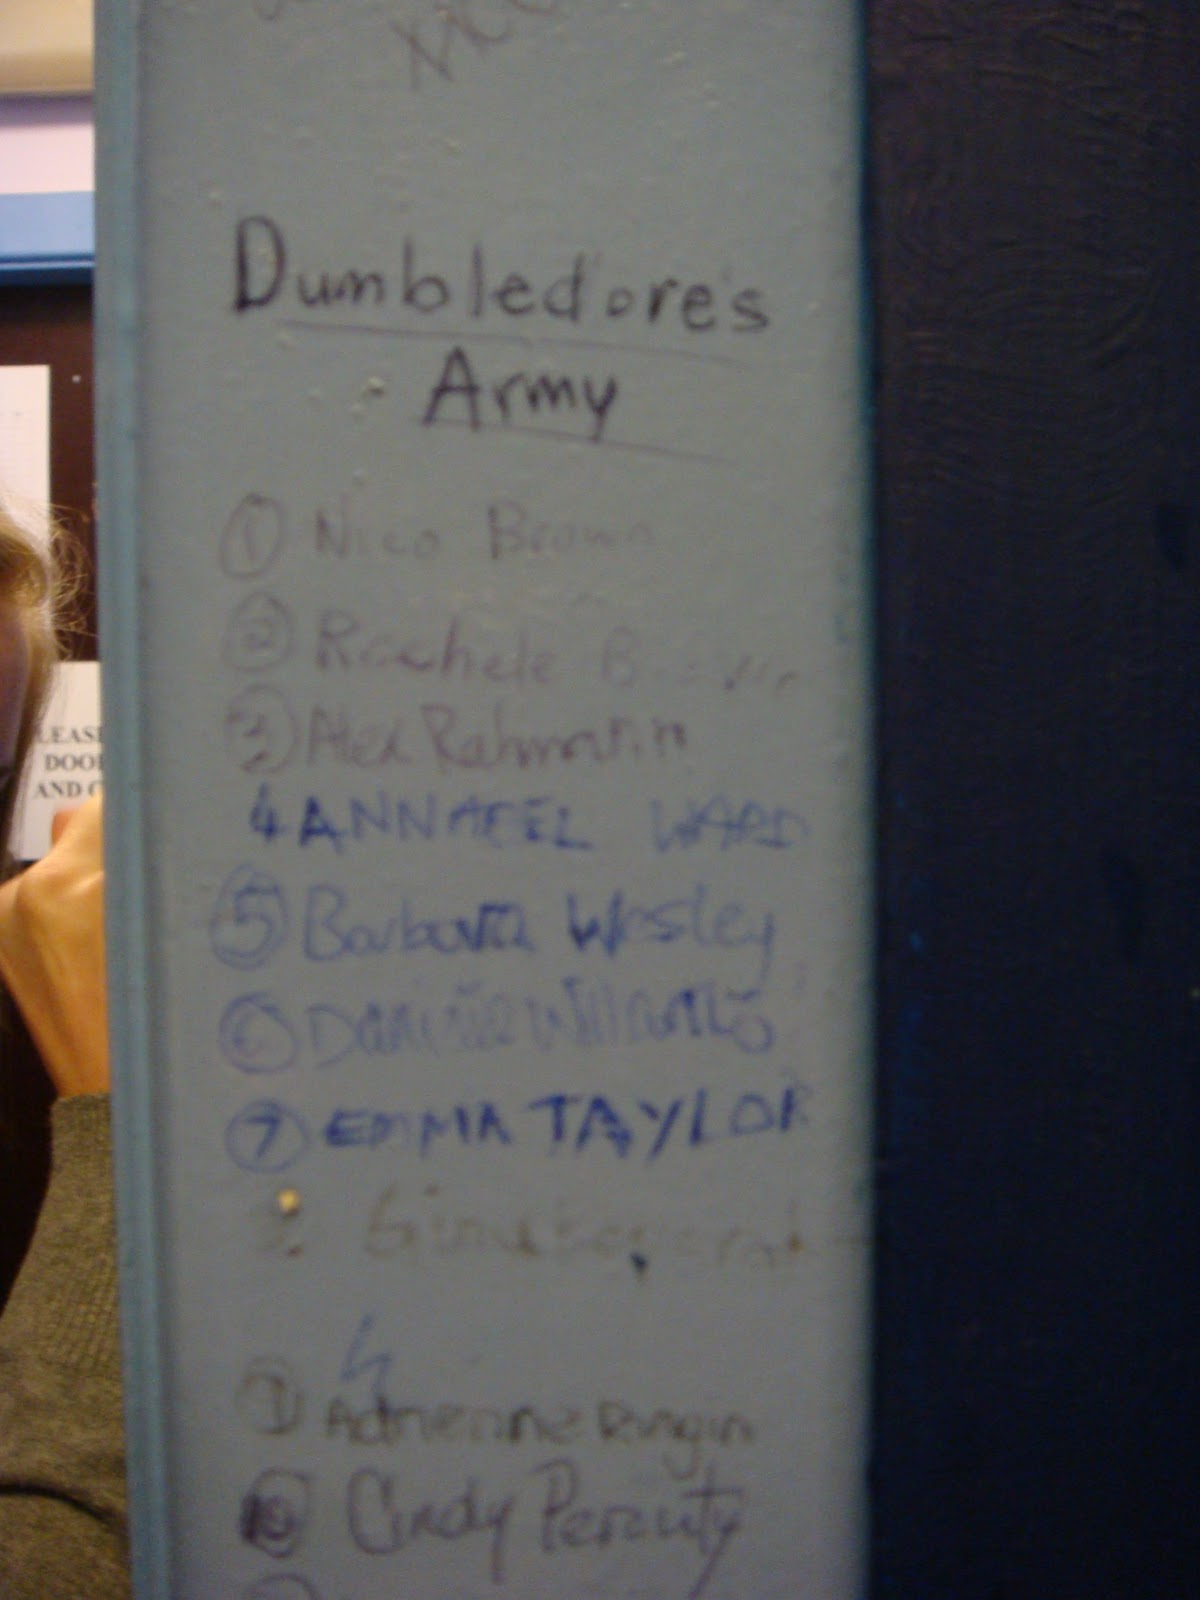 Dumbledore's
Army
① Nico Brown
② Rachele
③ Alex Rahmanin
4 ANNABEL WARD
⑤ Barbara Wesley
⑥ Danielle Williams
⑦ EMMA TAYLOR
Adrienne
⑩ Cindy
LEAS
DOO
AND